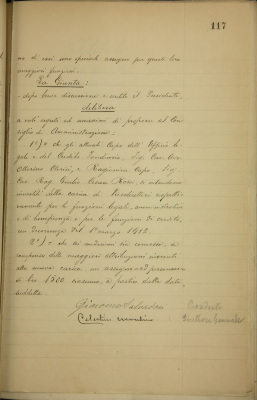 117
no di essi uno speciale assegno per queste loro
maggiori funzioni.
La Giunta:
- dopo breve discussione e sentito il Presidente,
delibera
a voti segreti ed unanimi di proporre al Con
siglio di Amministrazione:
1°) che gli attuali Capo dell'Ufficio Le
gale e del Credito Fondiario, Sig. Cav. Avv.
e Ragioniere Capo, Sig.
Cav. Rag. Giulio Cesare si intendano
investiti della carica di rispetti
vamente per le funzioni legali, amministrative
e di beneficenza e per le funzioni di credito,
con decorrenza dal 1° marzo 1912.
2°) che ai medesimi sia concesso, in
compenso delle maggiori attribuzioni inerenti
alla nuova carica un assegno ad personam
di lire 1500 annue, a partire dalla data
suddetta.
Giacomo Presidente
Celestino Direttore Generale